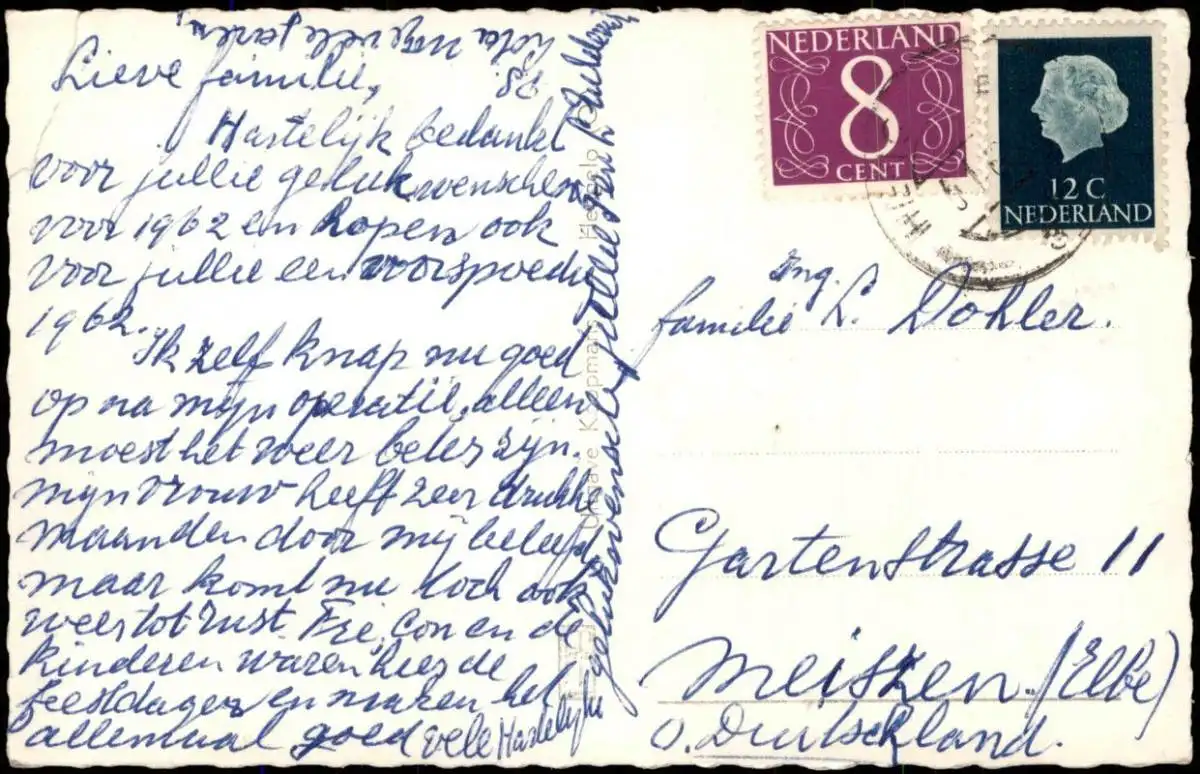 Lieve familie,
Hartelijk bedankt
voor jullie gelukwenschen
voor 1962 en hopen ook
voor jullie een voorspoedig
1962.
Ik zelf knap nu goed
op na mijn operatie, alleen
moest het weer beter zijn.
mijn vrouw heeft zeer drukke
maanden door mij beleefd
maar komt nu toch ook
weer tot rust. Fie, Con en de
kinderen waren hier de
feestdagen en maken het
allemaal goed vele Hartelijke
gelukwenschen jullie
nog vele jaren
NEDERLAND
8
CENT
12 C
NEDERLAND
Uitgave Koopmans Hengelo
Ing.
familie L. Dohler.
Gartenstrasse 11
Meiszen. (Elbe)
O. Deutschland.